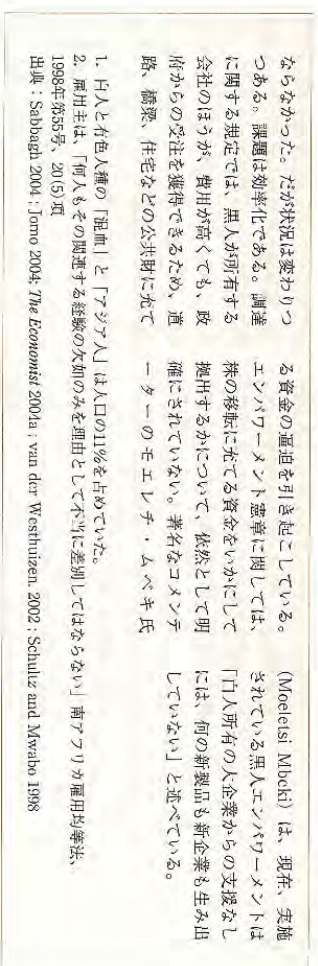 ならなかった。だが状況は変わりつ
つある。課題は効率化である。調達
に関する規定では、黒人が所有する
会社のほうが、費用が高くても、政
府からの受注を獲得できるため、道
路、橋梁、住宅などの公共財に充て
る資金の逼迫を引き起こしている。
エンパワーメント憲章に関しては、
株の移転に充てる資金をいかにして
拠出するかについて、依然として明
確にされていない。著名なコメンテ
ーターのモエレチ・ムベキ氏
(Moeletsi Mbeki) は、現在、実施
されている黒人エンパワーメントは
「白人所有の大企業からの支援なし
には、何の新製品も新企業も生み出
していない」と述べている。
1. 白人と有色人種の「混血」と「アジア人」は人口の11%を占めていた。
2. 雇用主は、「何人もその関連する経験の欠如のみを理由として不当に差別してはならない」南アフリカ雇用均等法、
1998年第55号、20(5)項
出典：Sabbagh 2004 ; Jomo 2004; The Economist 2004a ; van der Westhuizen, 2002 ; Schultz and Mwabo 1998